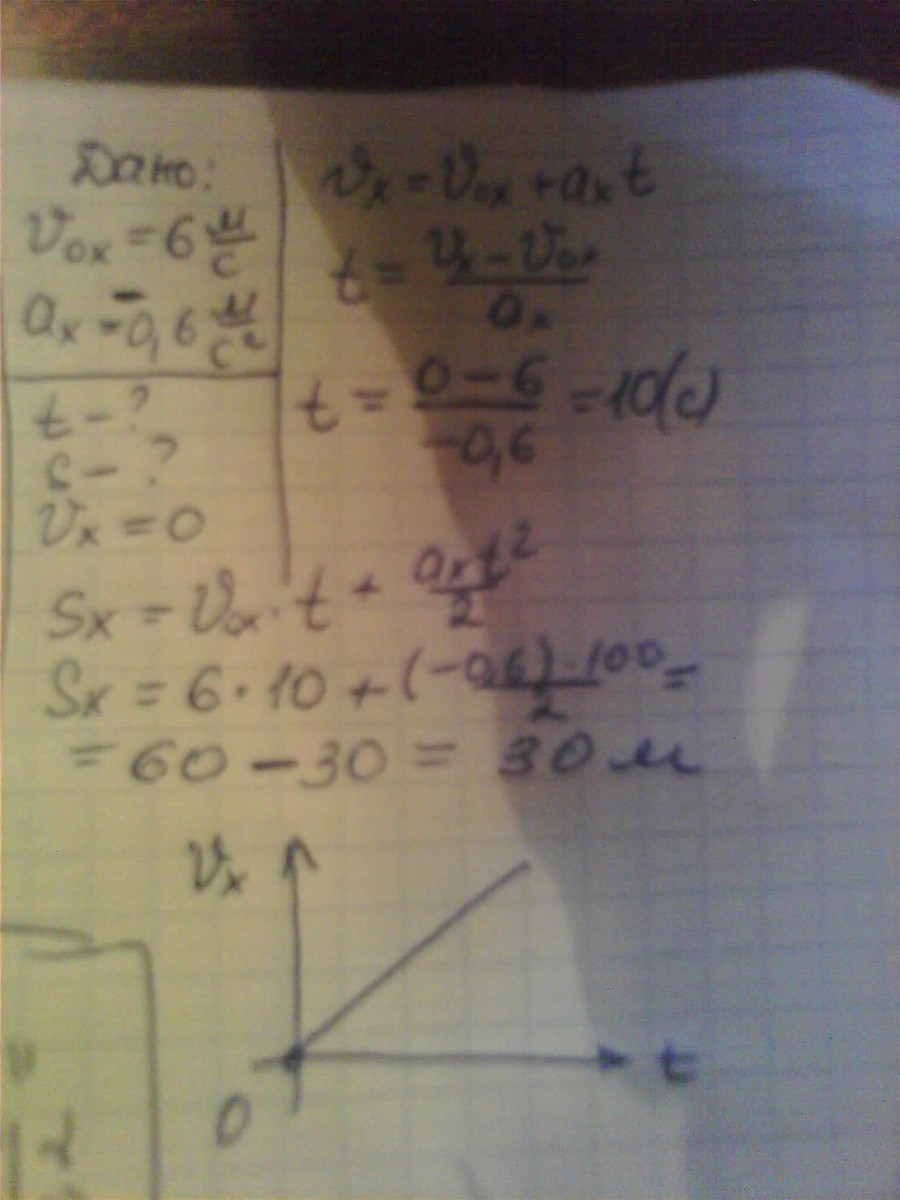 Дано:
υ₀ₓ = 6 м/с
aₓ = -0,6 м/с²
t - ?
s - ?
υₓ = 0
υₓ = υ₀ₓ + aₓt
t = (υₓ - υ₀ₓ)/aₓ
t = (0 - 6)/(-0,6) = 10(с)
Sₓ = υ₀ₓ · t + aₓt²/2
Sₓ = 6 · 10 + (-0,6) · 100/2 =
= 60 - 30 = 30 м
υₓ
t
0